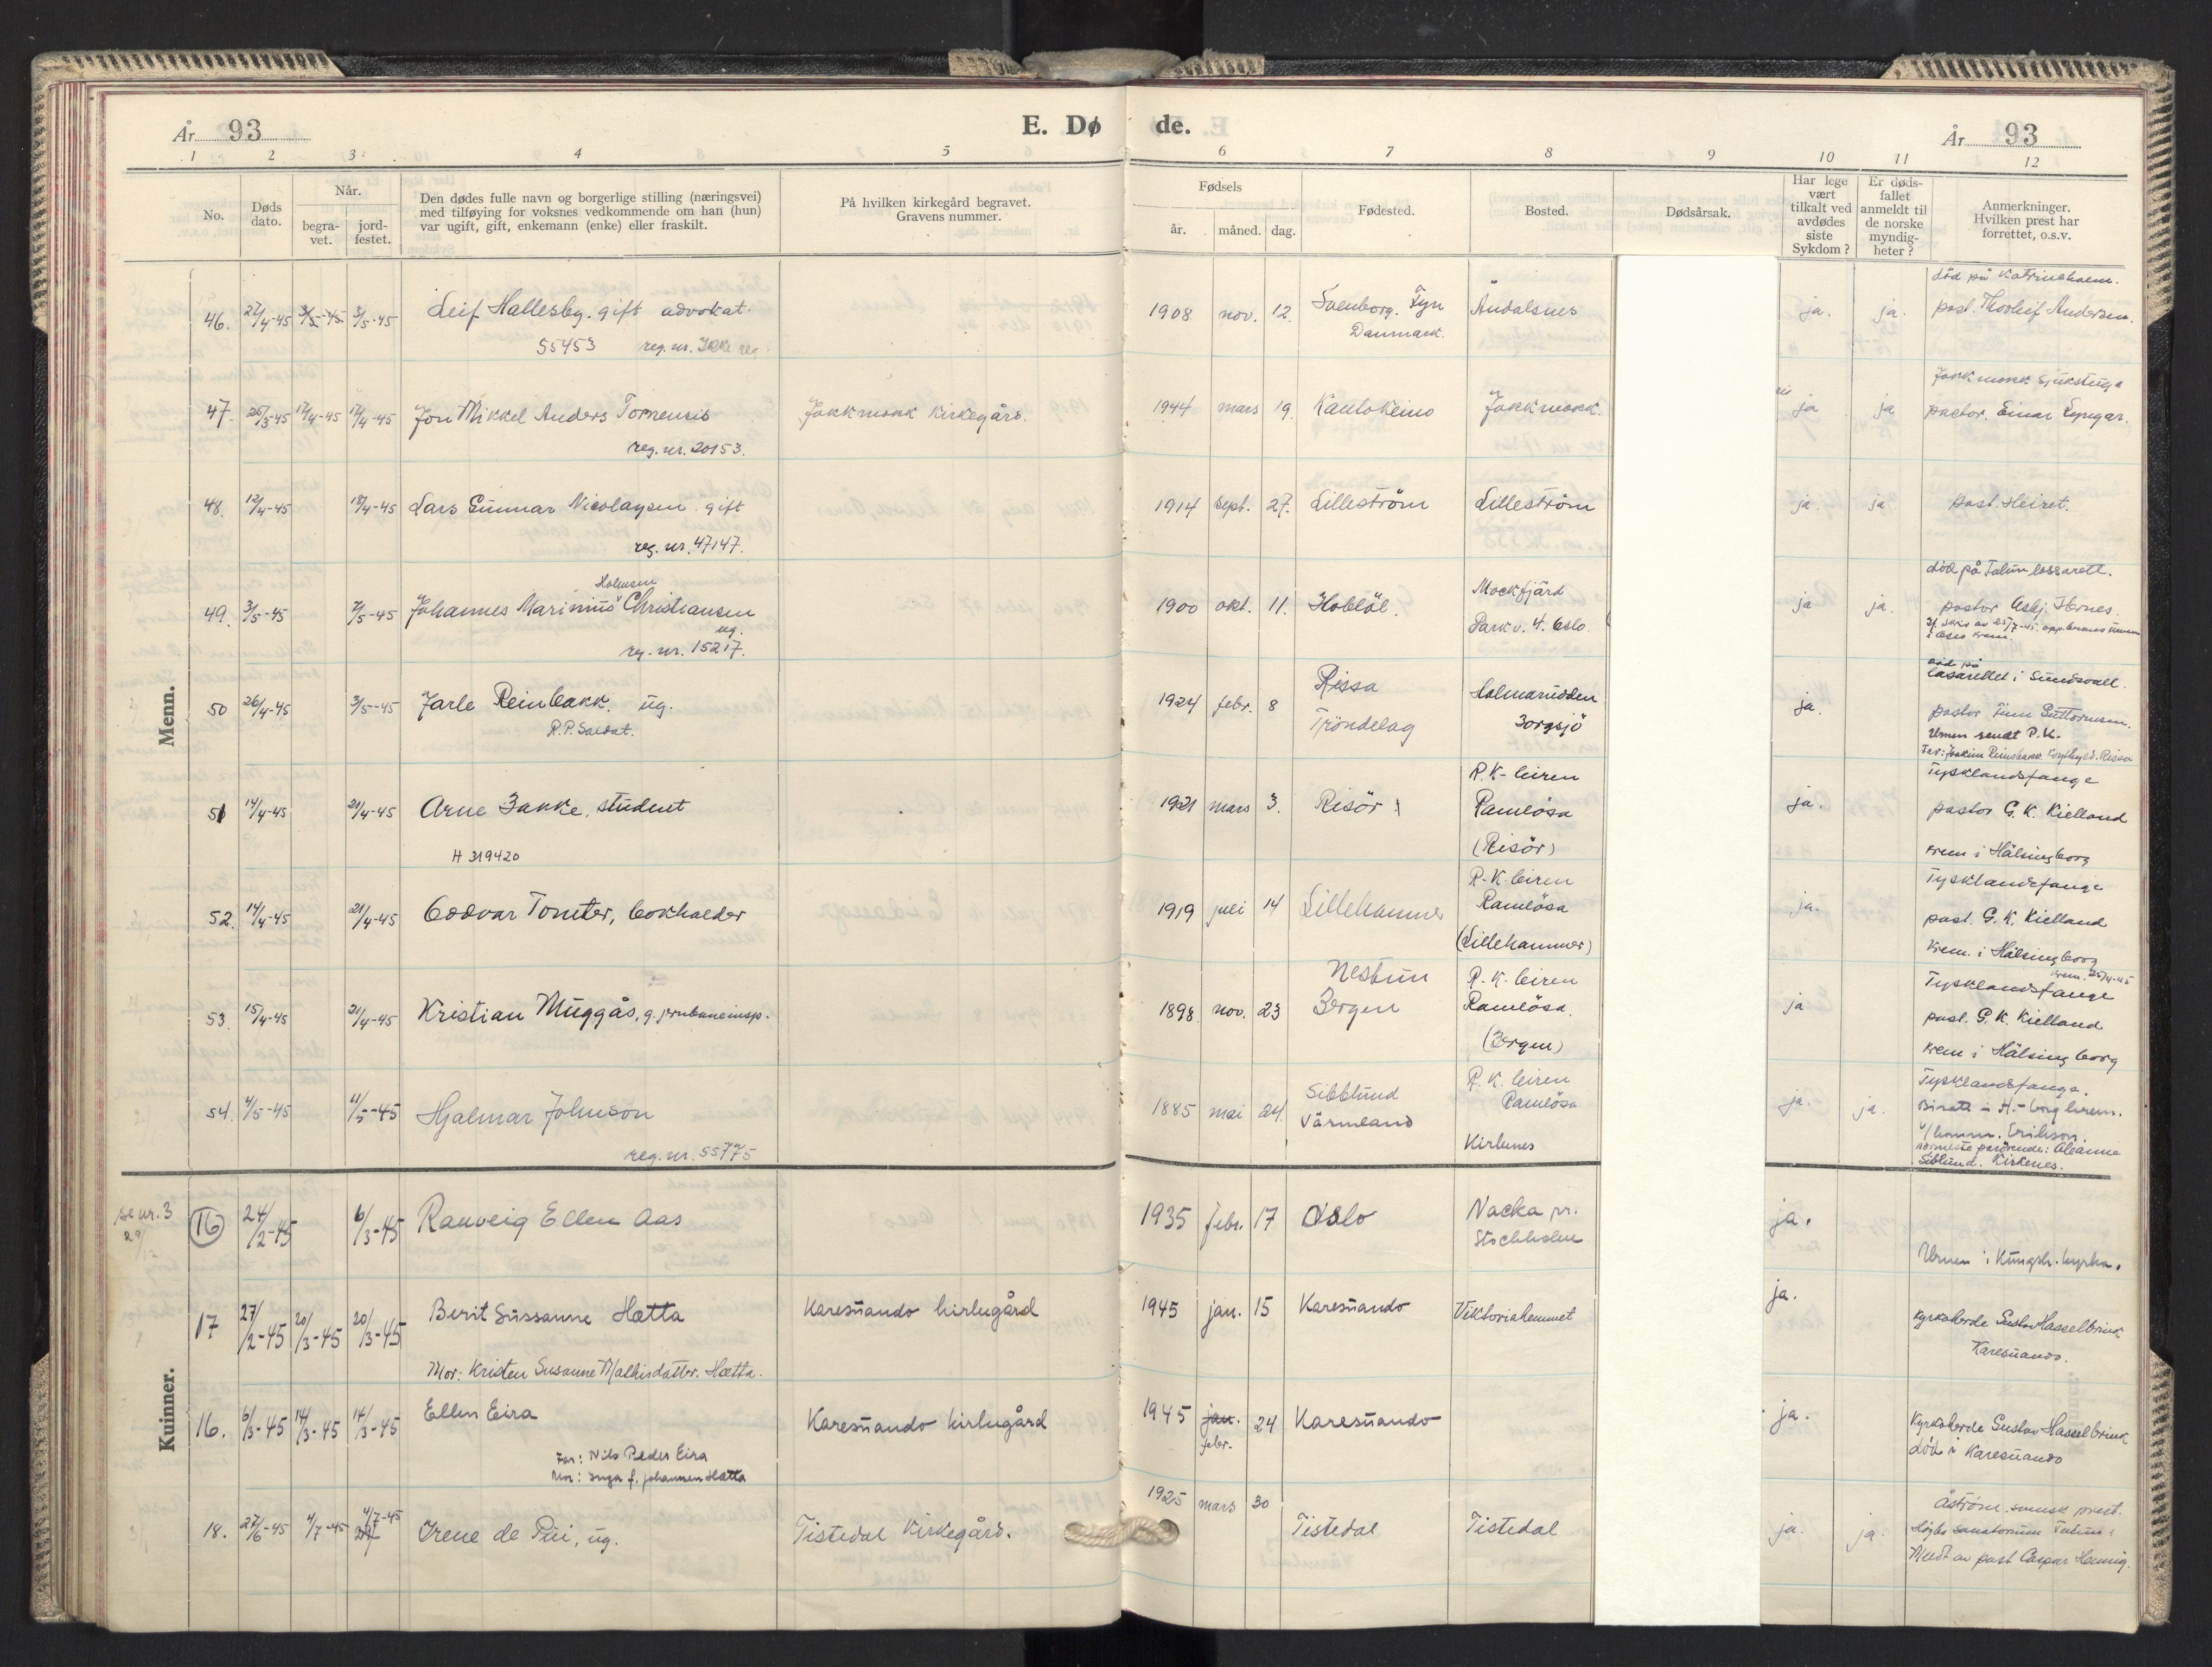 År 93
E. Dø de.
År 93
1 2 3 4 5 6 7 8 9 10 11 12
No.
Døds dato.
Når.
begra-vet.
jord-festet.
Den dødes fulle navn og borgerlige stilling (næringsvei)
med tilføying for voksnes vedkommende om han (hun)
var ugift, gift, enkemann (enke) eller fraskilt.
På hvilken kirkegård begravet.
Gravens nummer.
Fødsels
år. måned. dag.
Fødested.
Bosted.
Dødsårsak.
Har lege vært tilkalt ved avdødes siste Sykdom?
Er døds-fallet anmeldt til de norske myndig-heter?
Anmerkninger.
Hvilken prest har
forrettet, o.s.v.
Menn.
død på Katrineholm.
46. 27/4-45 3/5-45 3/5-45 Leif Hallesby. gift advokat. 1908 nov. 12. Svenborg. Fyn Åndalsnes ja. ja. past. Thorleif Andersen.
55453 reg. nr. Ikke reg. Danmark.
Jokkmokk Sjukstuga
47. 26/3-45 17/4-45 17/4-45 Jon Mikkel Anders Tornensis Jokkmokk Kirkegård. 1944 mars 19. Kautokeino Jokkmokk. ja ja pastor. Einar Lyngar.
reg. nr. 20153.
48. 12/4-45 18/4-45 Lars Gunnar Nicolaysen. gift 1914 sept. 27. Lilleström Lilleström ja. ja. past. Heiret.
reg. nr. 47147.
Holmsen Mockfjärd død på Falun lassarett.
49. 3/5-45 7/5-45 Johannes Marinius Christiansen 1900 okt. 11. Hobböl. Parkv. 4. Oslo. ja ja. pastor Asbj. Hernes.
ug.
reg. nr. 15217.
død på
lasarettet i Sundsvall.
50 26/4-45 3/5-45 Jarle Reinbakk. ug. 1924 febr. 8 Rissa Holmarudden ja. pastor Finn Guttormsen.
R.P. Soldat. Tröndelag Borgsjö Urnen sendt P.K.
R.K-leiren Tysklandsfange
51 14/4-45 21/4-45 Arne Bakke. student 1921 mars 3. Risör Ramlösa ja. pastor G. K. Kielland
H 319420 (Risör) krem i Hälsingborg
R.K. leiren Tysklandsfange
52. 14/4-45 21/4-45 Oddvar Tomter, bokholder 1919 juli 14 Lillehammer Ramlösa ja. past. G. K. Kielland
(Lillehammer) krem. i Hälsingborg
krem. 25/4-45
Nestun R.K. leiren Tysklandsfange
53. 15/4-45 21/4-45 Kristian Muggås, g. jernbaneinsp. 1898. nov. 23 Bergen Ramlösa. ja past. G. K. Kielland
(Bergen) krem i Hälsingborg
Sibblund R.K. leiren Tysklandsfange.
54. 4/5-45 11/5-45 Hjalmar Johnson 1885 mai 24 Värmland Ramlösa ja. ja. Bisatt i H.-borg krem.
reg. nr. 55775 Kirkenes v/komm. Erikson.
nærmeste pårörende: Aleanne
Siblund. Kirkenes.
Kuinner.
se nr. 3
16 24/2-45 6/3-45 Rauveig Ellen Aas 1935 febr. 17 Oslo Nacka pr. Stockholm ja.
Urnen i Kungsh. kyrka.
17 27/2-45 20/3-45 20/3-45 Berit Sussanne Hætta Karesuando kirkegård 1945 jan. 15 Karesuando Viktoriahemmet ja. Kyrkoherde Gustav Hasselbrink
Karesuando.
Mor: Kristen Susanne Mathisdatter. Hætta.
16. 6/3-45 14/3-45 14/3-45 Ellen Eira Karesuando kirkegård 1945 jan. febr. 24 Karesuando ja. Kyrkoherde Gustav Hasselbrink
død i Karesuando
Far: Nils Peder Eira
Mor: Inga f. Johannsen Hætta
4/7-45 1925 mars 30 Åström. svensk prest.
18. 27/6-45 4/7-45 Irene de Pui, ug. Tistedal Kirkegård. Tistedal Tistedal ja. ja. Högbo sanatorium Falun
Meldt av past Caspar Hennig.